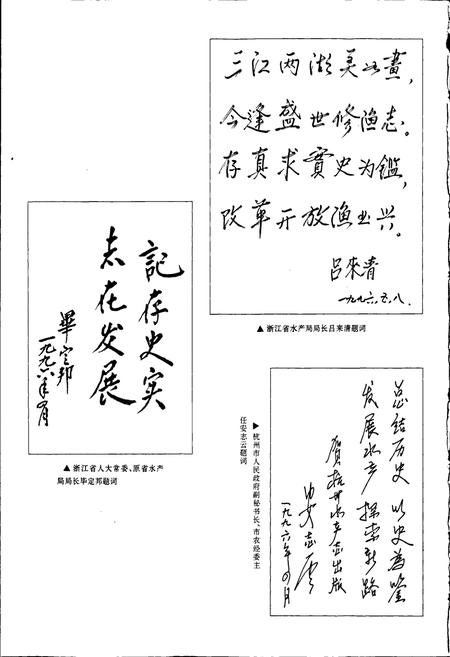 三江两湖美如畫，
今逢盛世修渔志。
存真求實史为鑑，
改革开放渔业兴。
吕來清
一九九六.五.八.
▲浙江省水产局局长吕来清题词
記存史实
志在发展
畢定邦
一九九六年 月
▲浙江省人大常委、原省水产
局局长毕定邦题词
总结历史 以史為鉴
发展水产 探索新路
贺杭州水产志出版
安志云
一九九六年四月
▲杭州市人民政府副秘书长、市农经委主
任安志云题词